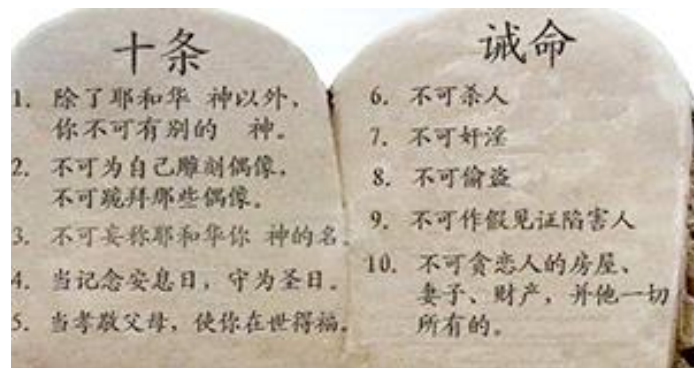 十条
1. 除了耶和华 神以外，
你不可有别的 神。
2. 不可为自己雕刻偶像，
不可跪拜那些偶像。
3. 不可妄称耶和华你 神的名。
4. 当记念安息日，守为圣日。
5. 当孝敬父母，使你在世得福。
诫命
6. 不可杀人
7. 不可奸淫
8. 不可偷盗
9. 不可作假见证陷害人
10. 不可贪恋人的房屋、
妻子、财产，并他一切
所有的。